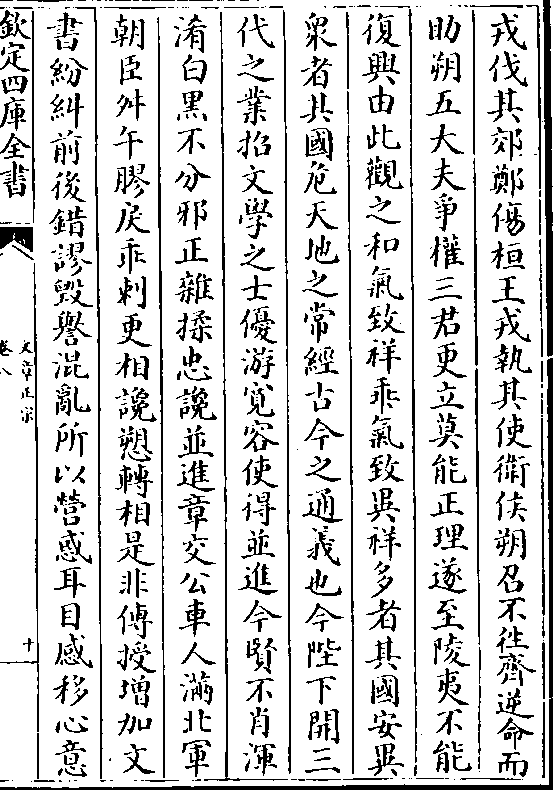 戎伐其郊鄭傷桓王戎執其使衛侯朔召不徃齊逆命而
助朔五大夫爭權三君更立莫能正理遂至陵夷不能
復興由此觀之和氣致祥乖氣致異祥多者其國安異
衆者其國危天地之常經古今之通義也今陛下開三
代之業招文學之士優游寛容使得並進今賢不肖渾
淆白黑不分邪正雜揉忠讒並進章交公車人滿北軍
朝臣舛午膠戾乖剌更相讒愬轉相是非傅授增加文
書紛糾前後錯謬毀譽混亂所以營惑耳目感移心意
欽定四庫全書
文章正宗
卷八
十